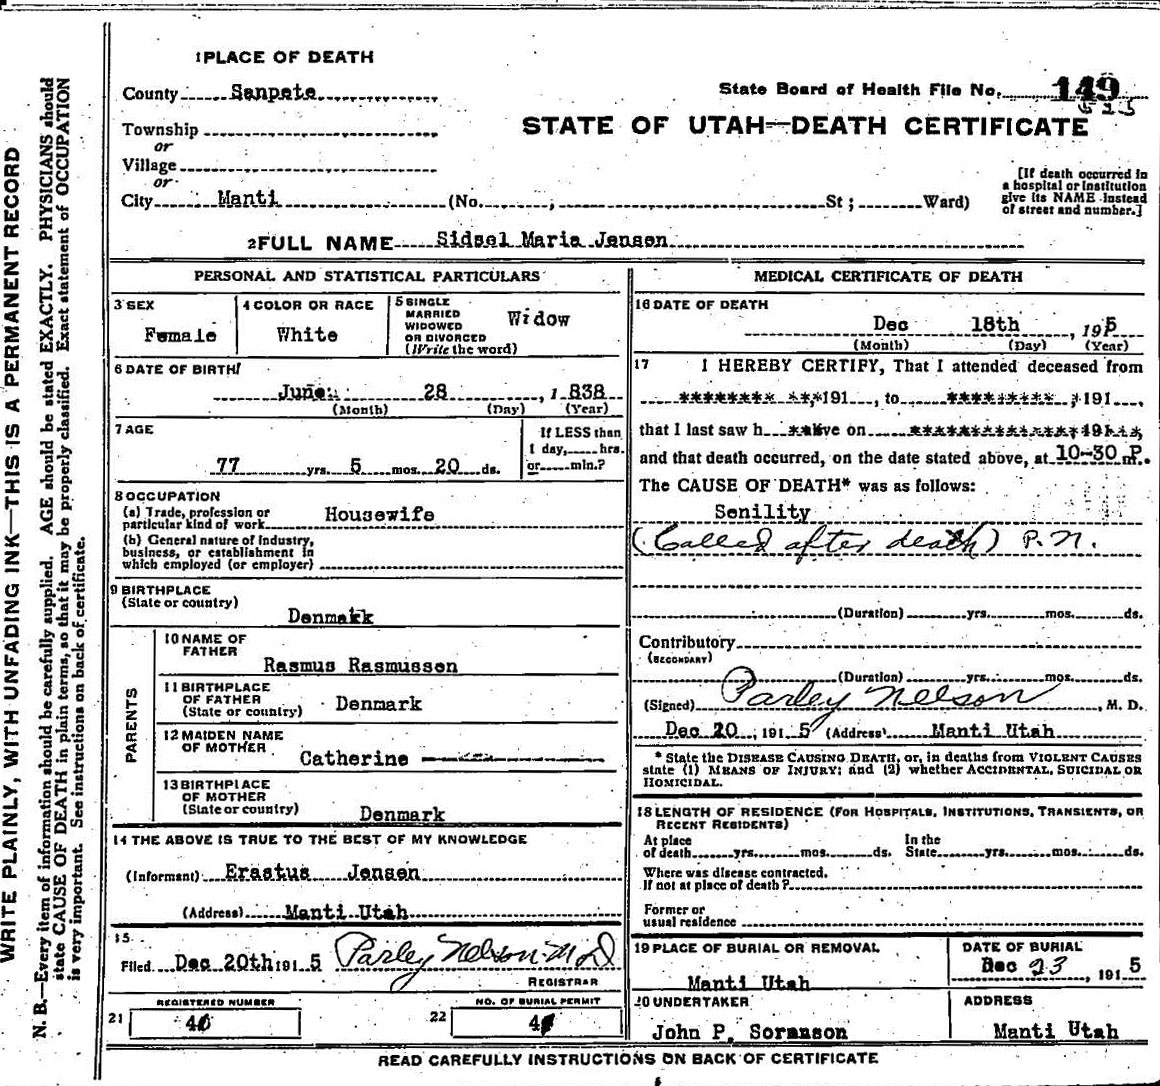 1 PLACE OF DEATH
County Sanpete
State Board of Health File No. 149
525
Township
or
Village
or
City Manti (No. ; St ; Ward)
STATE OF UTAH—DEATH CERTIFICATE
[If death occurred in
a hospital or institution
give its NAME instead
of street and number.]
2 FULL NAME Sidsel Maria Jensen
PERSONAL AND STATISTICAL PARTICULARS
3 SEX
Female
4 COLOR OR RACE
White
5 SINGLE
MARRIED
WIDOWED
OR DIVORCED
(Write the word)
Widow
6 DATE OF BIRTH
June 28, 1838
(Month) (Day) (Year)
7 AGE
77 yrs. 5 mos. 20 ds.
If LESS than
1 day, hrs.
or min.?
8 OCCUPATION
(a) Trade, profession or
particular kind of work Housewife
(b) General nature of industry,
business, or establishment in
which employed (or employer)
9 BIRTHPLACE
(State or country)
Denmark
PARENTS
10 NAME OF
FATHER
Rasmus Rasmussen
11 BIRTHPLACE
OF FATHER
(State or country) Denmark
12 MAIDEN NAME
OF MOTHER
Catherine
13 BIRTHPLACE
OF MOTHER
(State or country) Denmark
14 THE ABOVE IS TRUE TO THE BEST OF MY KNOWLEDGE
(Informant) Erastus Jensen
(Address) Manti Utah
15
Filed Dec 20th 1915 Parley Nelson M D
REGISTRAR
REGISTERED NUMBER
21
NO. OF BURIAL PERMIT
22
MEDICAL CERTIFICATE OF DEATH
16 DATE OF DEATH
Dec 18th, 1915
(Month) (Day) (Year)
17 I HEREBY CERTIFY, That I attended deceased from
******** **, 191 , to ********** , 191 ,
that I last saw h alive on **************, 191
and that death occurred, on the date stated above, at 10-30 P. m.
The CAUSE OF DEATH* was as follows:
Senility
(Called after death) P.N.
(Duration) yrs. mos. ds.
Contributory
(SECONDARY)
(Duration) yrs. mos. ds.
(Signed) Parley Nelson, M. D.
Dec 20, 1915 (Address) Manti Utah
* State the DISEASE CAUSING DEATH, or, in deaths from VIOLENT CAUSES
state (1) MEANS OF INJURY; and (2) whether ACCIDENTAL, SUICIDAL OR
HOMICIDAL.
18 LENGTH OF RESIDENCE (FOR HOSPITALS, INSTITUTIONS, TRANSIENTS, OR
RECENT RESIDENTS)
At place In the
of death yrs. mos. ds. State yrs. mos. ds.
Where was disease contracted,
If not at place of death?
Former or
usual residence
19 PLACE OF BURIAL OR REMOVAL
Manti Utah
DATE OF BURIAL
Dec 23, 1915
20 UNDERTAKER
John P. Soranson
ADDRESS
Manti Utah
READ CAREFULLY INSTRUCTIONS ON BACK OF CERTIFICATE
WRITE PLAINLY, WITH UNFADING INK—THIS IS A PERMANENT RECORD
N. B.—Every item of information should be carefully supplied. AGE should be stated EXACTLY. PHYSICIANS should
state CAUSE OF DEATH in plain terms, so that it may be properly classified. Exact statement of OCCUPATION
is very important. See instructions on back of certificate.